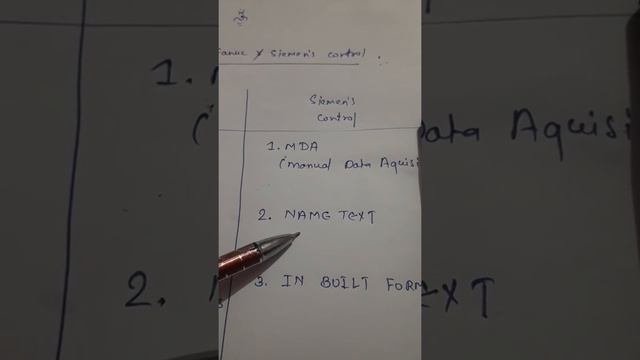 Fanuc & Siemen's control
Siemen's
control
1. MDA
(Manual Data Aquisi
2. NAME TEXT
3. IN BUILT FORM